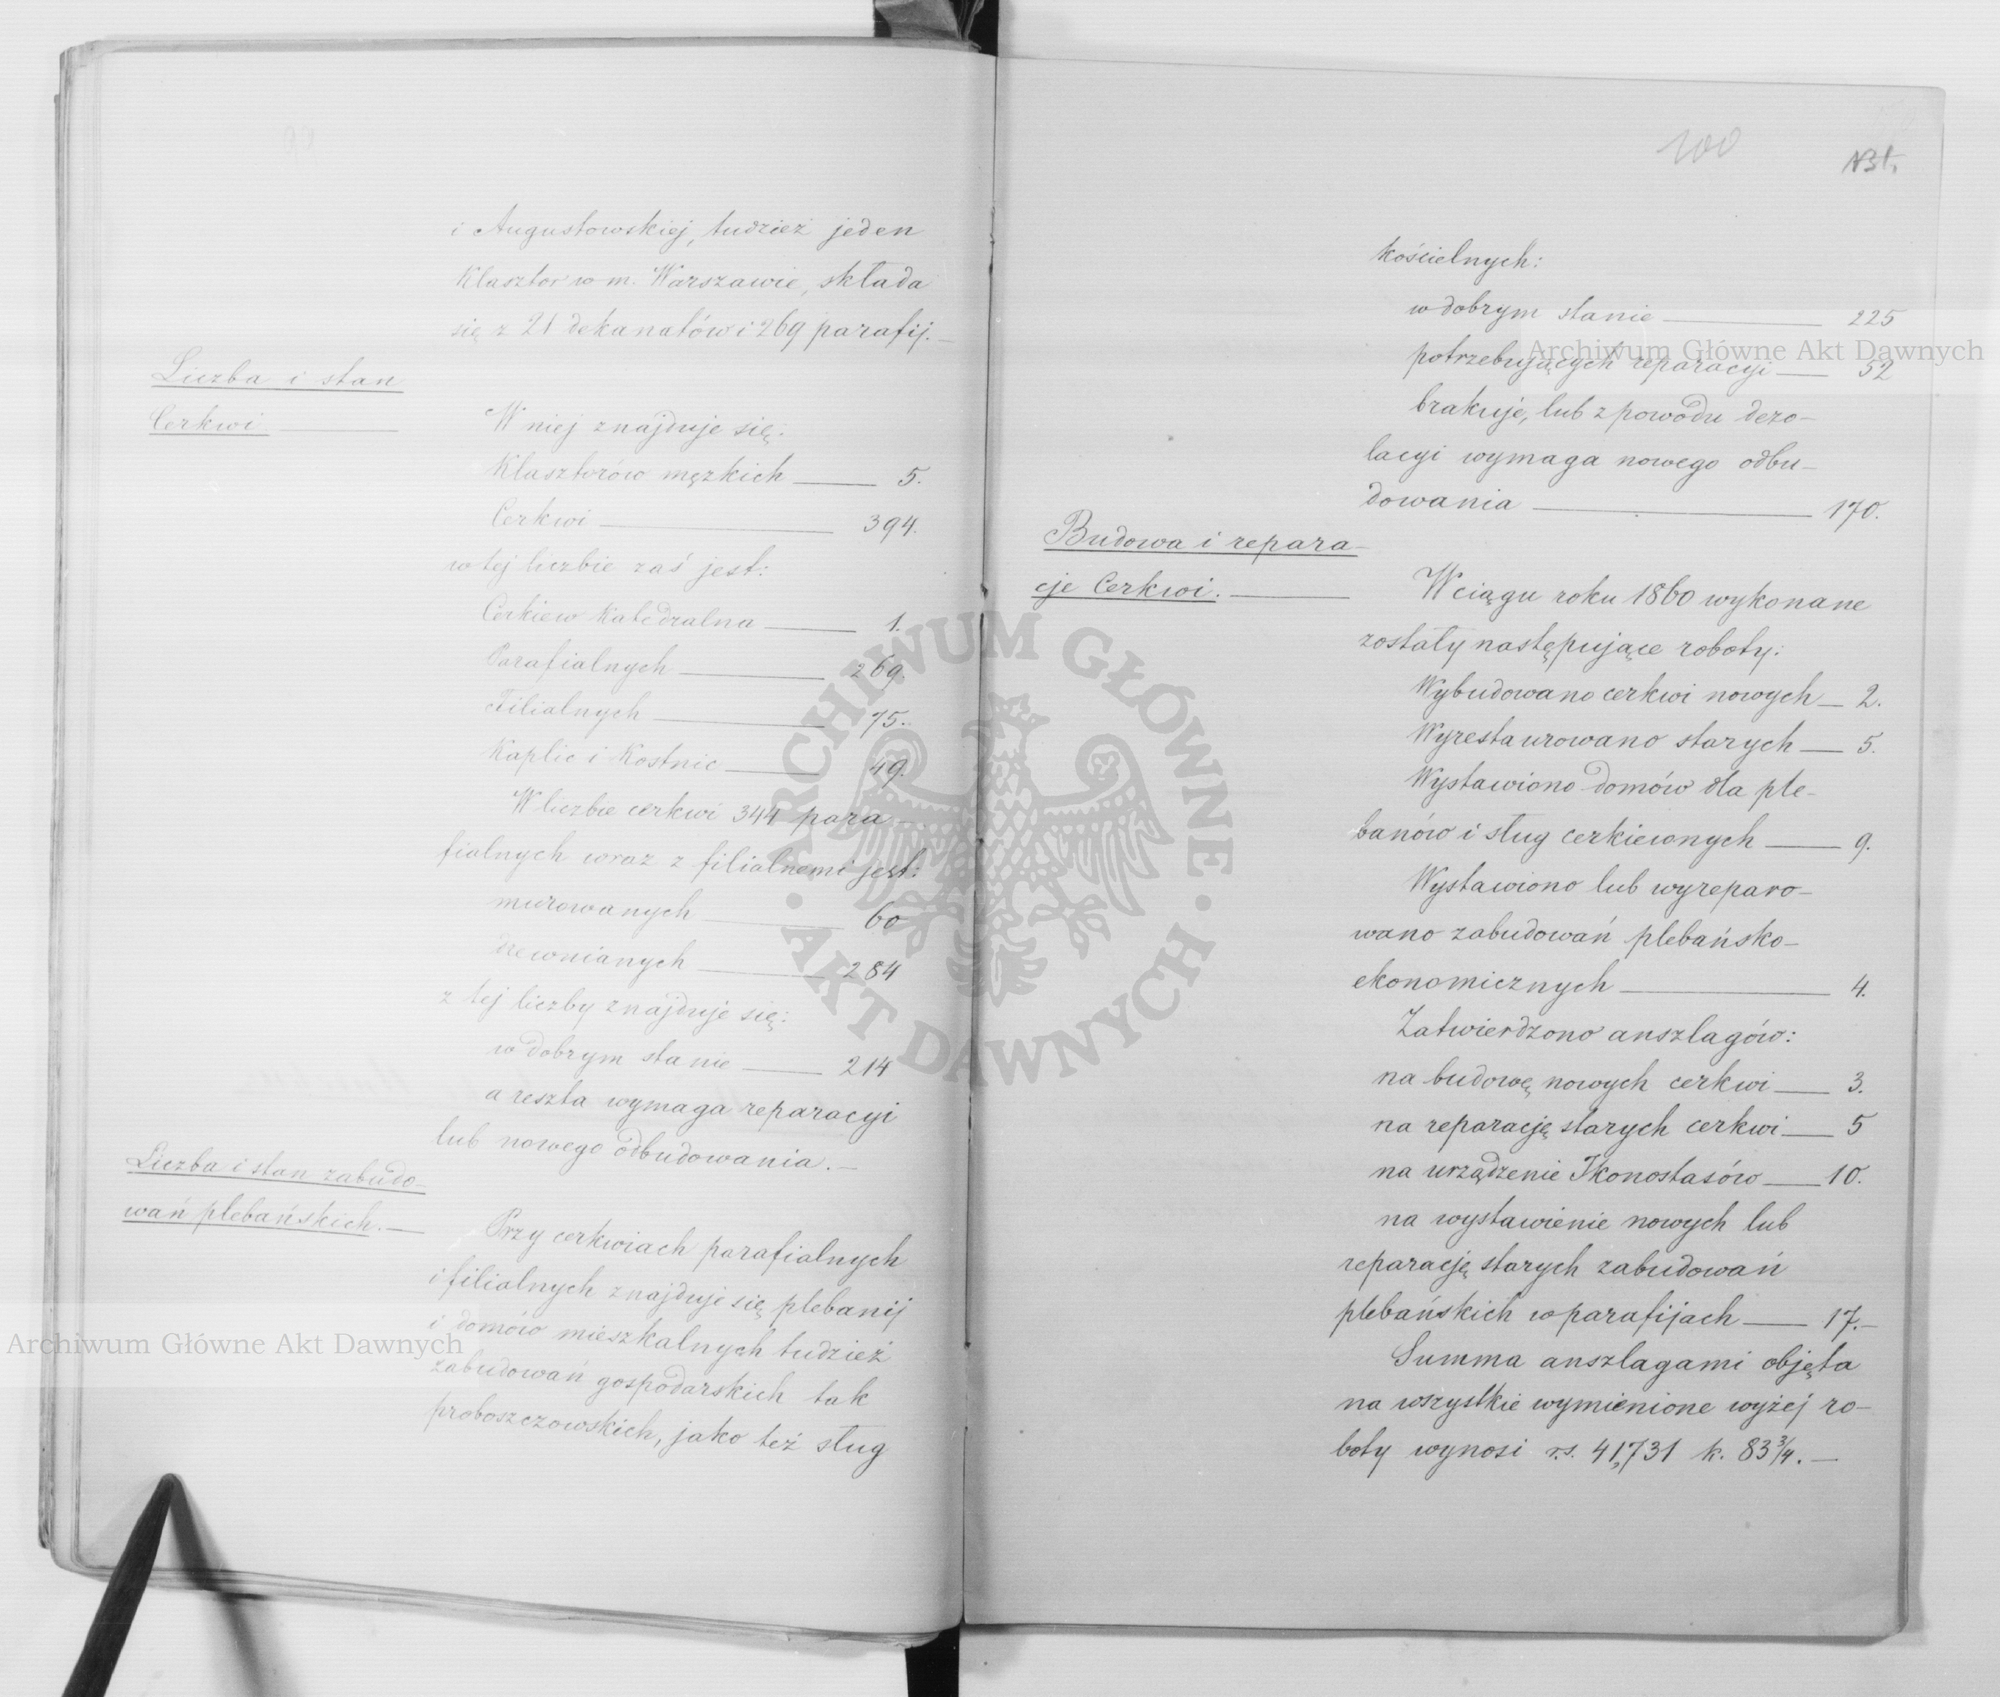 i Augustowskiej, tudzież jeden
Klasztor w m. Warszawie, składa
się z 21 dekanatów i 269 parafij.—
Liczba i stan
Cerkwi.
W niej znajduje się:
Klasztorów męzkich — 5.
Cerkwi — 394.
w tej liczbie zaś jest:
Cerkiew Katedralna — 1.
Parafialnych — 269.
Filialnych — 75.
Kaplic i Kostnic — 49.
W liczbie cerkwi 344 para—
fialnych wraz z filialnemi jest:
murowanych — 60
drewnianych — 284
z tej liczby znajduje się:
w dobrym stanie — 214
a reszta wymaga reparacyi
lub nowego odbudowania.—
Liczba i stan zabudo—
wań plebańskich.—
Przy cerkwiach parafialnych
i filialnych znajduje się plebanij
i domów mieszkalnych tudzież
zabudowań gospodarskich tak
proboszczowskich, jako też sług
100
kościelnych:
w dobrym stanie — 225
potrzebujących reparacyi — 52
brakuje, lub z powodu dezo—
lacyi wymaga nowego odbu—
dowania — 170.
Budowa i repara—
cje Cerkwi.—
W ciągu roku 1860 wykonane
zostały następujące roboty:
Wybudowano cerkwi nowych — 2.
Wyrestaurowano starych — 5.
Wystawiono domów dla ple—
banów i sług cerkiewnych — 9.
Wystawiono lub wyreparo—
wano zabudowań plebańsko—
ekonomicznych — 4.
Zatwierdzono anszlagów:
na budowę nowych cerkwi — 3.
na reparację starych cerkwi — 5
na urządzenie Ikonostasów — 10.
na wystawienie nowych lub
reparację starych zabudowań
plebańskich w parafijach — 17.—
Summa anszlagami objęta
na wszystkie wymienione wyżej ro—
boty wynosi r.s. 41,731 k. 83 3/4.—
Archiwum Główne Akt Dawnych
Archiwum Główne Akt Dawnych
ARCHIWUM GŁÓWNE
· AKT DAWNYCH ·